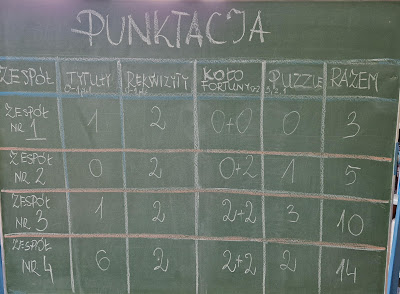 PUNKTACJA
ZESPÓŁ TYTUŁY REKWIZYTY KOŁO FORTUNY PUZZLE RAZEM
ZESPÓŁ NR 1 1 2 0+0 0 3
ZESPÓŁ NR 2 0 2 0+2 1 5
ZESPÓŁ NR 3 1 2 2+2 3 10
ZESPÓŁ NR 4 6 2 2+2 2 14